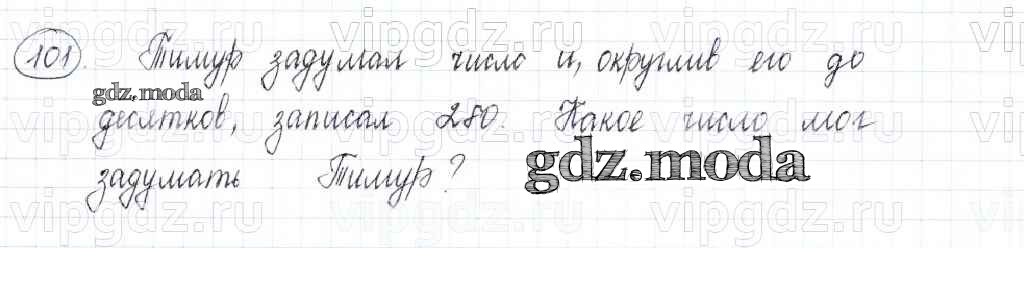 101. Тимур задумал число и, округлив его до
десятков, записал 280. Какое число мог
задумать Тимур?
gdz.moda
gdz.moda
vipgdz.ru vipgdz.ru vipgdz.ru vip
vipgdz.ru vipgdz.ru vipgdz.ru vip
vipgdz.ru vipgdz.ru vipgdz.ru vip